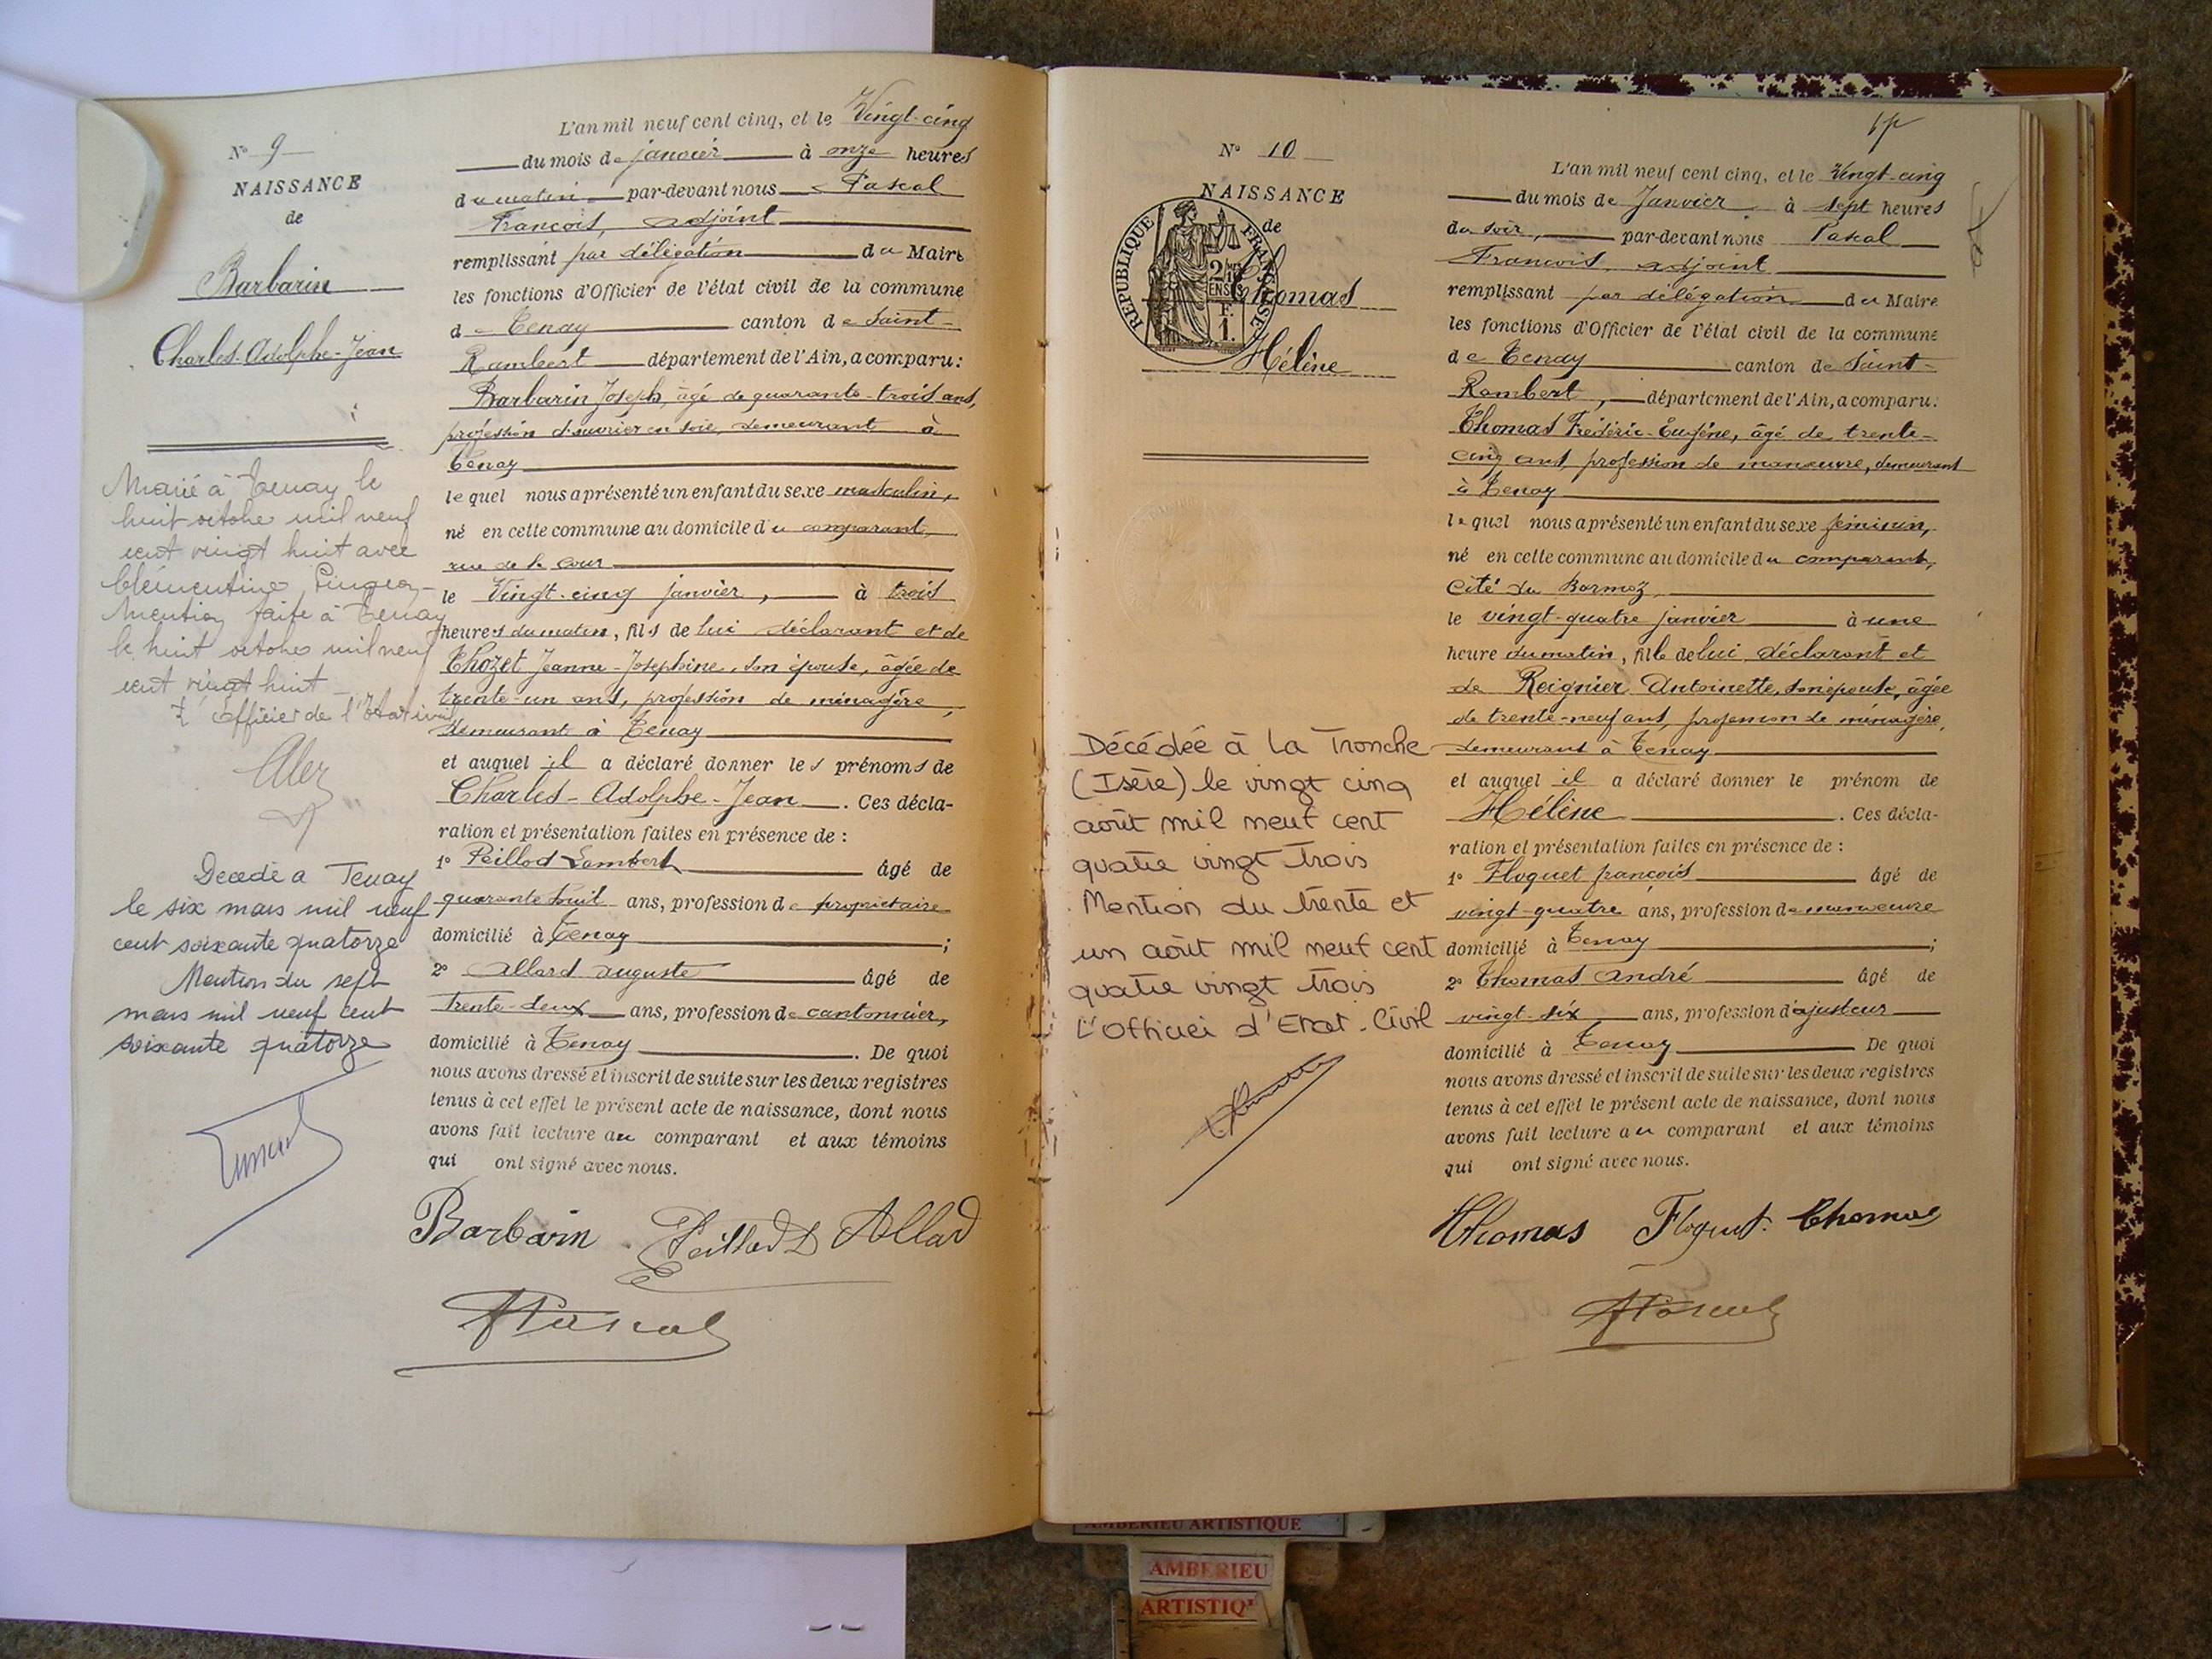 N° 9
NAISSANCE
de
Barbarin
Charles-Adolphe-Jean
Marié à Tenay le
huit octobre mil neuf
cent vingt huit avec
Clémentine
Mention faite à Tenay
le huit octobre mil neuf
cent vingt huit
L'officier de l'Etat civil
Décédé à Tenay
le six mars mil neuf
cent soixante quatorze
Mention du sept
mars mil neuf cent
soixante quatorze
L'an mil neuf cent cinq, et le Vingt-cinq
du mois de janvier à onze heures
du matin par-devant nous Pascal
François, adjoint
remplissant par délégation du Maire
les fonctions d'Officier de l'état civil de la commune
de Tenay canton de Saint-
Rambert département de l'Ain, a comparu:
Barbarin Joseph, âgé de quarante-trois ans,
profession d'ouvrier en soie, demeurant à
Tenay
lequel nous a présenté un enfant du sexe masculin,
né en cette commune au domicile du comparant,
rue de la Cour
le Vingt-cinq janvier, à trois
heures du matin, fils de lui déclarant et de
Chozet Jeanne-Joséphine, son épouse, âgée de
trente-un ans, profession de ménagère,
demeurant à Tenay
et auquel il a déclaré donner les prénoms de
Charles-Adolphe-Jean. Ces décla-
ration et présentation faites en présence de :
1° Peillod Lambert âgé de
quarante huit ans, profession de propriétaire
domicilié à Tenay ;
2° Allard Auguste âgé de
trente-deux ans, profession de cantonnier,
domicilié à Tenay. De quoi
nous avons dressé et inscrit de suite sur les deux registres
tenus à cet effet le présent acte de naissance, dont nous
avons fait lecture au comparant et aux témoins
qui ont signé avec nous.
Barbarin Peillod L Allard
Pascal
N° 10
NAISSANCE
de
Thomas
Hélène
REPUBLIQUE FRANÇAISE
2/10 EN SUS
F.
1.
Décédée à La Tronche
(Isère) le vingt cinq
août mil neuf cent
quatre vingt trois
Mention du trente et
un août mil neuf cent
quatre vingt trois
L'Officier d'Etat-Civil
L'an mil neuf cent cinq, et le Vingt-cinq
du mois de Janvier à sept heures
du soir, par-devant nous Pascal
François, adjoint
remplissant par délégation du Maire
les fonctions d'Officier de l'état civil de la commune
de Tenay canton de Saint-
Rambert, département de l'Ain, a comparu:
Thomas Frédéric-Eugène, âgé de trente-
cinq ans, profession de manœuvre, demeurant
à Tenay
lequel nous a présenté un enfant du sexe féminin,
né en cette commune au domicile du comparant,
Cité du Bormoz,
le vingt-quatre janvier à une
heure du matin, fille de lui déclarant et
de Reignier Antoinette, son épouse, âgée
de trente-neuf ans, profession de ménagère,
demeurant à Tenay
et auquel il a déclaré donner le prénom de
Hélène. Ces décla-
ration et présentation faites en présence de :
1° Floquet françois âgé de
vingt-quatre ans, profession de manœuvre
domicilié à Tenay ;
2° Thomas André âgé de
vingt-six ans, profession d'ajusteur
domicilié à Tenay De quoi
nous avons dressé et inscrit de suite sur les deux registres
tenus à cet effet le présent acte de naissance, dont nous
avons fait lecture au comparant et aux témoins
qui ont signé avec nous.
Thomas Floquet Thomas
Pascal
AMBERIEU ARTISTIQUE
AMBERIEU
ARTISTIQ